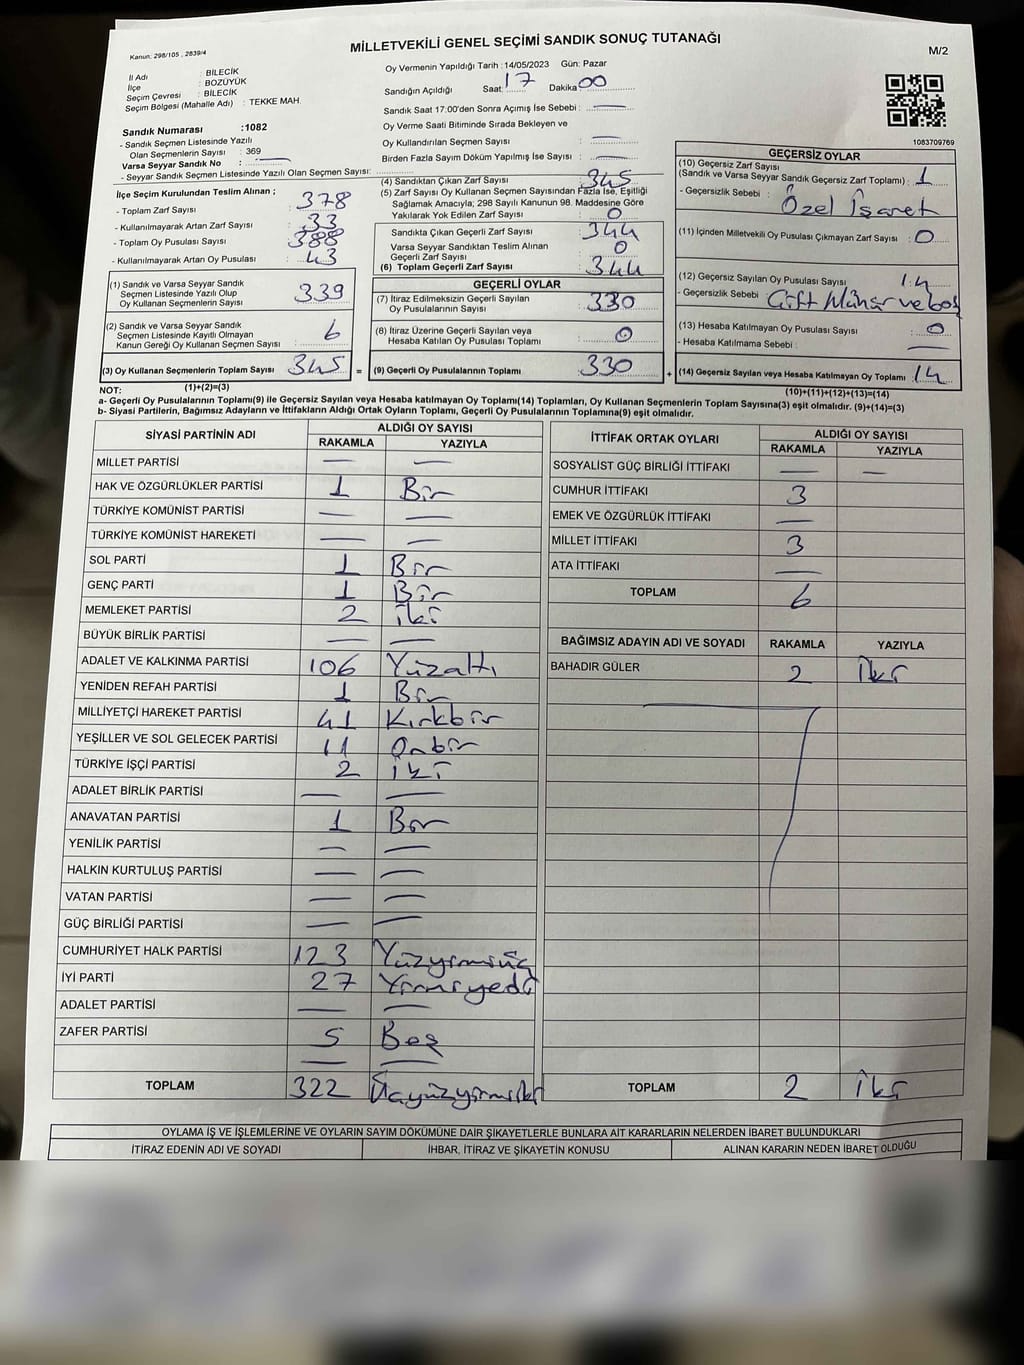 Kanun: 298/105, 2839/4
MİLLETVEKİLİ GENEL SEÇİMİ SANDIK SONUÇ TUTANAĞI
M/2
İl Adı : BİLECİK
İlçe : BOZÜYÜK
Seçim Çevresi : BİLECİK
Seçim Bölgesi (Mahalle Adı) : TEKKE MAH.
Sandık Numarası :1082
- Sandık Seçmen Listesinde Yazılı
Olan Seçmenlerin Sayısı : 369
Varsa Seyyar Sandık No : —
- Seyyar Sandık Seçmen Listesinde Yazılı Olan Seçmen Sayısı:
Oy Vermenin Yapıldığı Tarih :14/05/2023 Gün: Pazar
Sandığın Açıldığı Saat: 17 Dakika 00
Sandık Saat 17:00'den Sonra Açımış İse Sebebi : —
Oy Verme Saati Bitiminde Sırada Bekleyen ve
Oy Kullandırılan Seçmen Sayısı : —
Birden Fazla Sayım Döküm Yapılmış İse Sayısı : —
1083709769
İlçe Seçim Kurulundan Teslim Alınan ;
- Toplam Zarf Sayısı : 378
- Kullanılmayarak Artan Zarf Sayısı : 33
- Toplam Oy Pusulası Sayısı : 388
- Kullanılmayarak Artan Oy Pusulası : 43
(1) Sandık ve Varsa Seyyar Sandık
Seçmen Listesinde Yazılı Olup
Oy Kullanan Seçmenlerin Sayısı : 339
(2) Sandık ve Varsa Seyyar Sandık
Seçmen Listesinde Kayıtlı Olmayan
Kanun Gereği Oy Kullanan Seçmen Sayısı : 6
(3) Oy Kullanan Seçmenlerin Toplam Sayısı : 345 =
(4) Sandıktan Çıkan Zarf Sayısı : 345
(5) Zarf Sayısı Oy Kullanan Seçmen Sayısından Fazla İse, Eşitliği
Sağlamak Amacıyla; 298 Sayılı Kanunun 98. Maddesine Göre
Yakılarak Yok Edilen Zarf Sayısı : 0
Sandıkta Çıkan Geçerli Zarf Sayısı : 344
Varsa Seyyar Sandıktan Teslim Alınan
Geçerli Zarf Sayısı : 0
(6) Toplam Geçerli Zarf Sayısı : 344
GEÇERLİ OYLAR
(7) İtiraz Edilmeksizin Geçerli Sayılan
Oy Pusulalarının Sayısı : 330
(8) İtiraz Üzerine Geçerli Sayılan veya
Hesaba Katılan Oy Pusulası Toplamı : 0
(9) Geçerli Oy Pusulalarının Toplamı : 330 +
GEÇERSİZ OYLAR
(10) Geçersiz Zarf Sayısı
(Sandık ve Varsa Seyyar Sandık Geçersiz Zarf Toplamı) : 1
- Geçersizlik Sebebi : Özel İşaret
(11) İçinden Milletvekili Oy Pusulası Çıkmayan Zarf Sayısı : 0
(12) Geçersiz Sayılan Oy Pusulası Sayısı : 14
- Geçersizlik Sebebi : Çift Mühür ve boş
(13) Hesaba Katılmayan Oy Pusulası Sayısı : 0
- Hesaba Katılmama Sebebi : —
(14) Geçersiz Sayılan veya Hesaba Katılmayan Oy Toplamı : 14
NOT: (1)+(2)=(3) (10)+(11)+(12)+(13)=(14)
a- Geçerli Oy Pusulalarının Toplamı(9) ile Geçersiz Sayılan veya Hesaba katılmayan Oy Toplamı(14) Toplamları, Oy Kullanan Seçmenlerin Toplam Sayısına(3) eşit olmalıdır. (9)+(14)=(3)
b- Siyasi Partilerin, Bağımsız Adayların ve İttifakların Aldığı Ortak Oyların Toplamı, Geçerli Oy Pusulalarının Toplamına(9) eşit olmalıdır.
SİYASİ PARTİNİN ADI ALDIĞI OY SAYISI
RAKAMLA YAZIYLA
MİLLET PARTİSİ — —
HAK VE ÖZGÜRLÜKLER PARTİSİ 1 Bir
TÜRKİYE KOMÜNİST PARTİSİ — —
TÜRKİYE KOMÜNİST HAREKETİ — —
SOL PARTİ 1 Bir
GENÇ PARTİ 1 Bir
MEMLEKET PARTİSİ 2 iki
BÜYÜK BİRLİK PARTİSİ — —
ADALET VE KALKINMA PARTİSİ 106 Yüzaltı
YENİDEN REFAH PARTİSİ 1 Bir
MİLLİYETÇİ HAREKET PARTİSİ 41 Kırkbir
YEŞİLLER VE SOL GELECEK PARTİSİ 11 Onbir
TÜRKİYE İŞÇİ PARTİSİ 2 iki
ADALET BİRLİK PARTİSİ — —
ANAVATAN PARTİSİ 1 Bir
YENİLİK PARTİSİ — —
HALKIN KURTULUŞ PARTİSİ — —
VATAN PARTİSİ — —
GÜÇ BİRLİĞİ PARTİSİ — —
CUMHURİYET HALK PARTİSİ 123 Yüzyirmiüç
İYİ PARTİ 27 Yirmiyedi
ADALET PARTİSİ — —
ZAFER PARTİSİ 5 Beş
— —
TOPLAM 322 Üçyüzyirmiiki
İTTİFAK ORTAK OYLARI ALDIĞI OY SAYISI
RAKAMLA YAZIYLA
SOSYALİST GÜÇ BİRLİĞİ İTTİFAKI — —
CUMHUR İTTİFAKI 3
EMEK VE ÖZGÜRLÜK İTTİFAKI —
MİLLET İTTİFAKI 3
ATA İTTİFAKI —
TOPLAM 6
BAĞIMSIZ ADAYIN ADI VE SOYADI RAKAMLA YAZIYLA
BAHADIR GÜLER 2 İki
TOPLAM 2 İki
OYLAMA İŞ VE İŞLEMLERİNE VE OYLARIN SAYIM DÖKÜMÜNE DAİR ŞİKAYETLERLE BUNLARA AİT KARARLARIN NELERDEN İBARET BULUNDUKLARI
İTİRAZ EDENİN ADI VE SOYADI İHBAR, İTİRAZ VE ŞİKAYETİN KONUSU ALINAN KARARIN NEDEN İBARET OLDUĞU